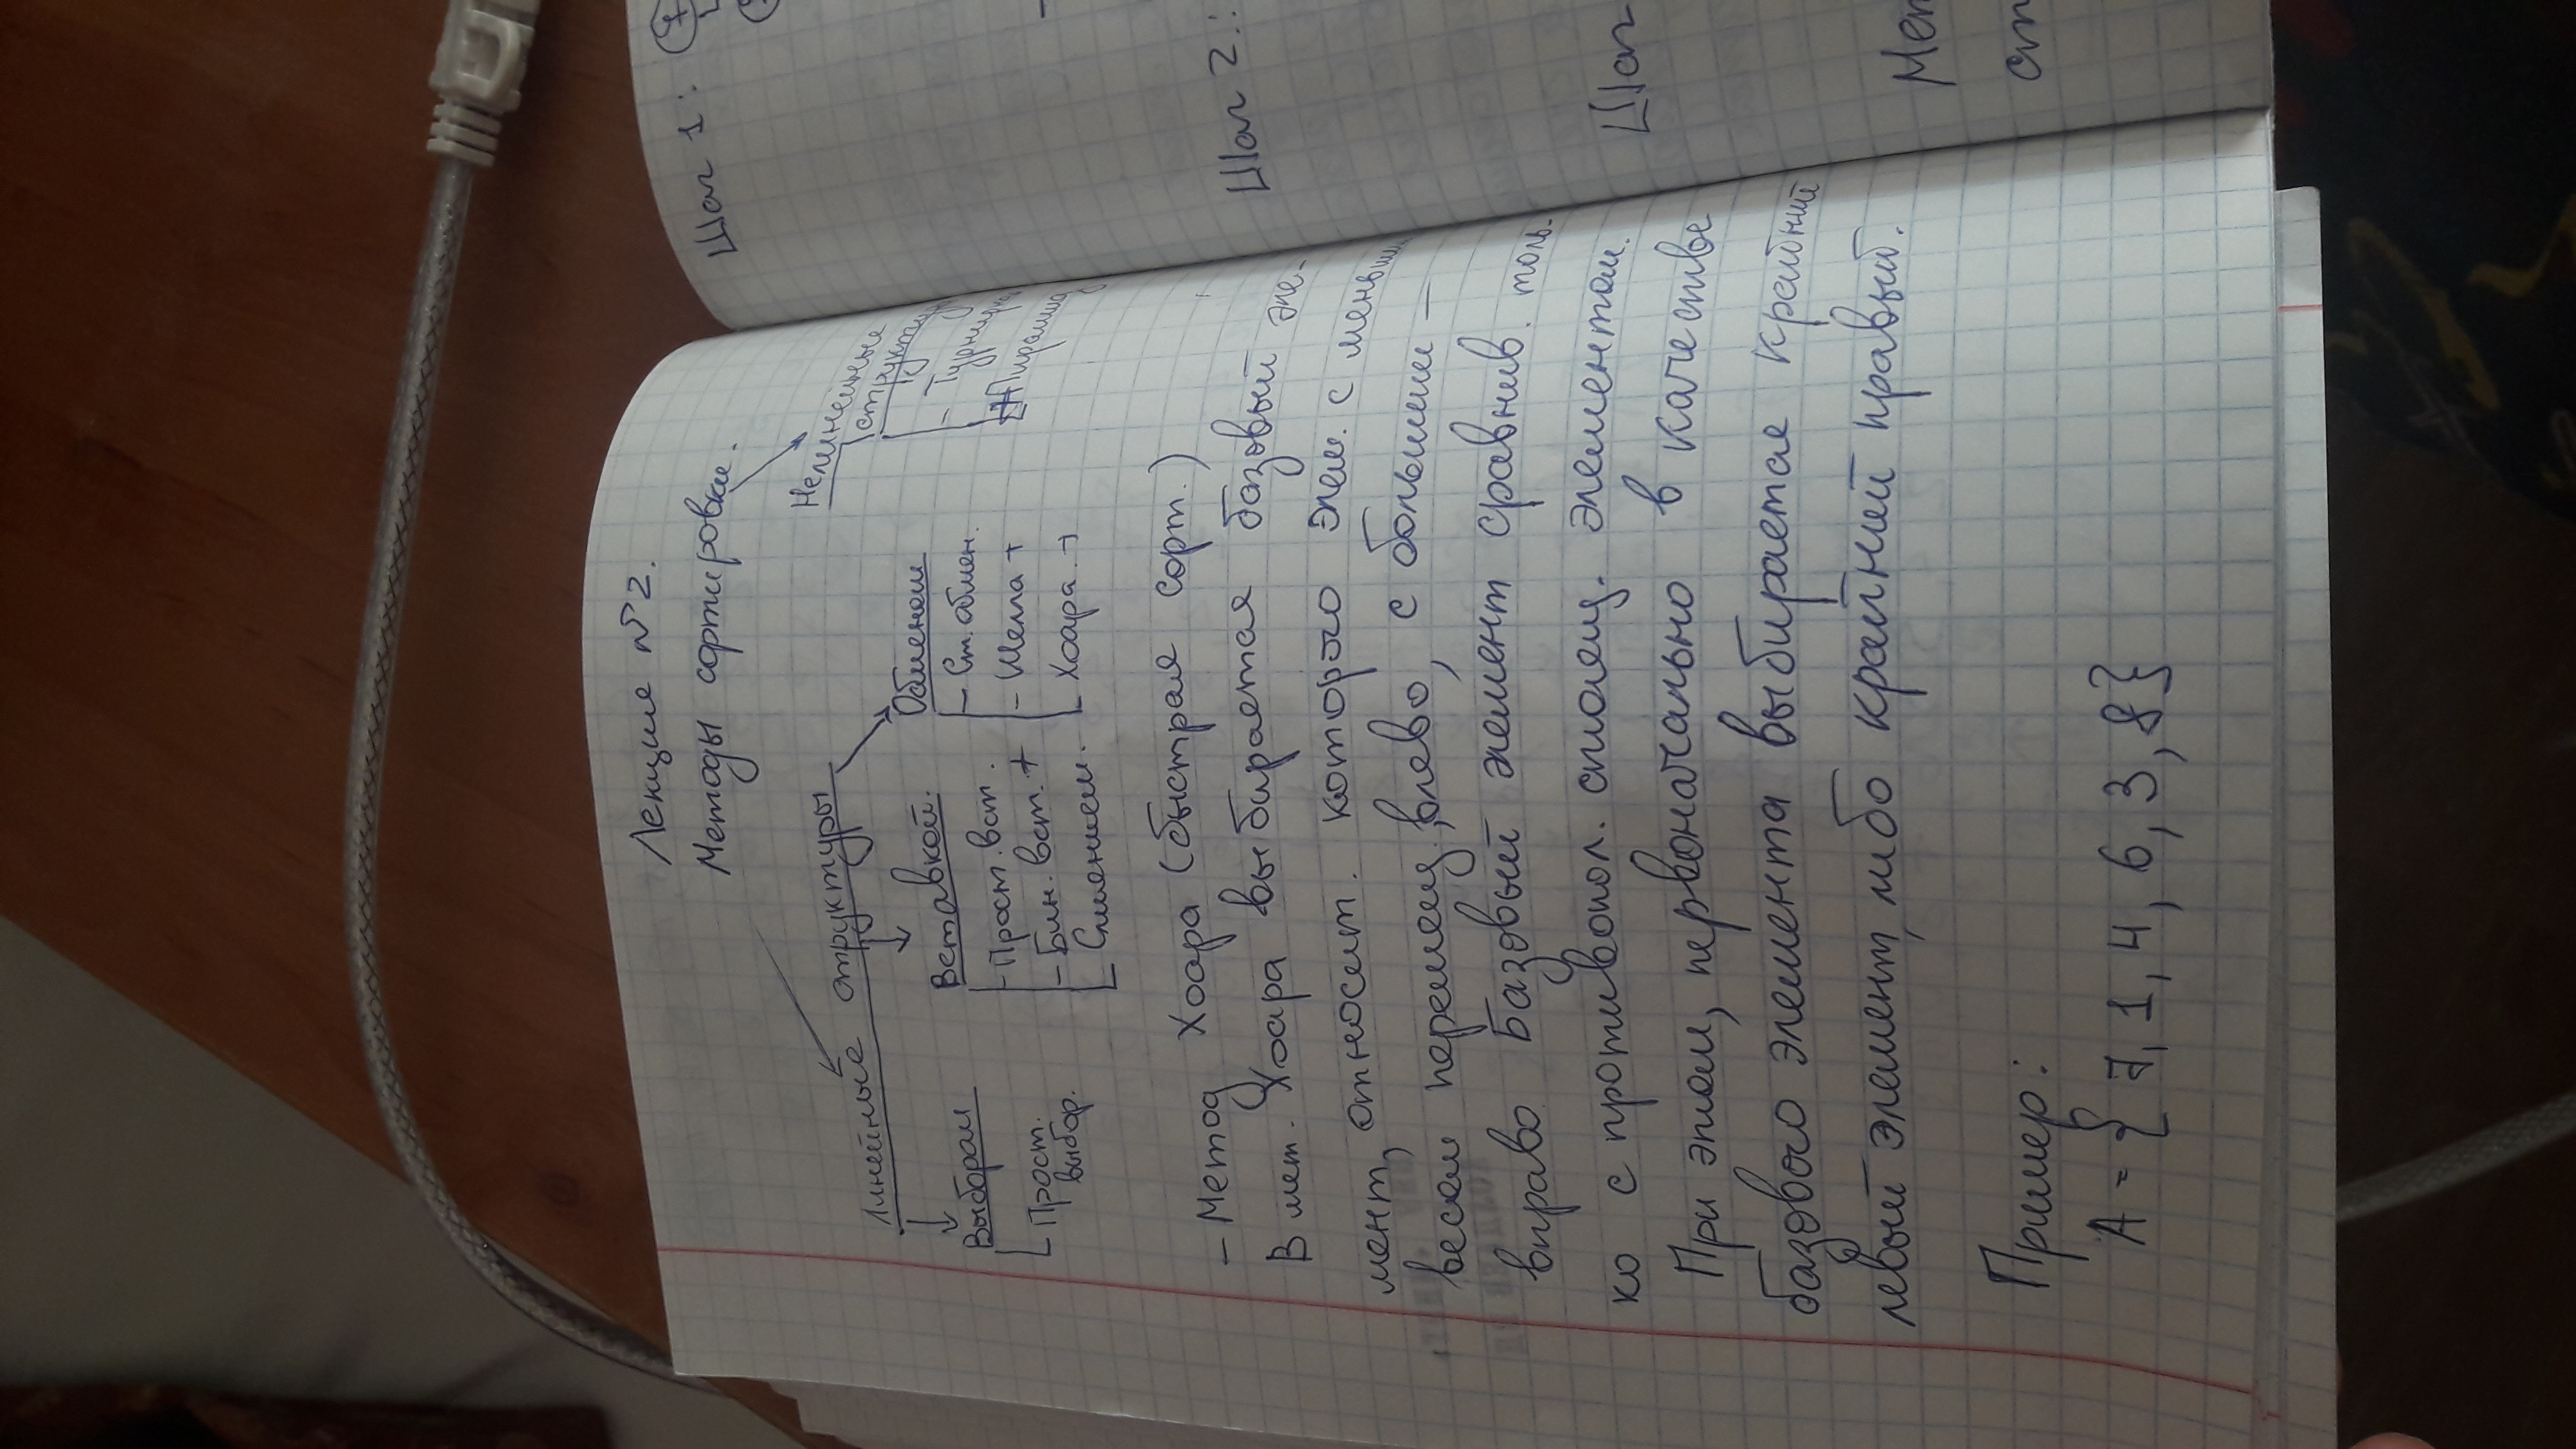 Лекция №2.
Методы сортировки.
Линейные структуры
Нелинейные
структуры
Выбором
Вставкой.
Обменом
- Прост.
выбор.
- Прост. вст.
- Бин. вст. +
- Слиянием.
- Ст. обмен.
- Шелла +
- Хоара. +
- Турнирная
- Пирамид
- Метод Хоара (быстрая сорт.)
В мет. Хоара выбирается базовый эле-
мент, относит. которого элем. с меньшим
весом перемещ. влево, с большим —
вправо. Базовый элемент сравнив. толь-
ко с противопол. стоящ. элементом.
При этом, первоначально в качестве
базового элемента выбирается крайний
левый элемент, либо крайний правый.
Пример:
A = { 7, 1, 4, 6, 3, 8}
Шаг 1: 7
Шаг 2.:
Шаг